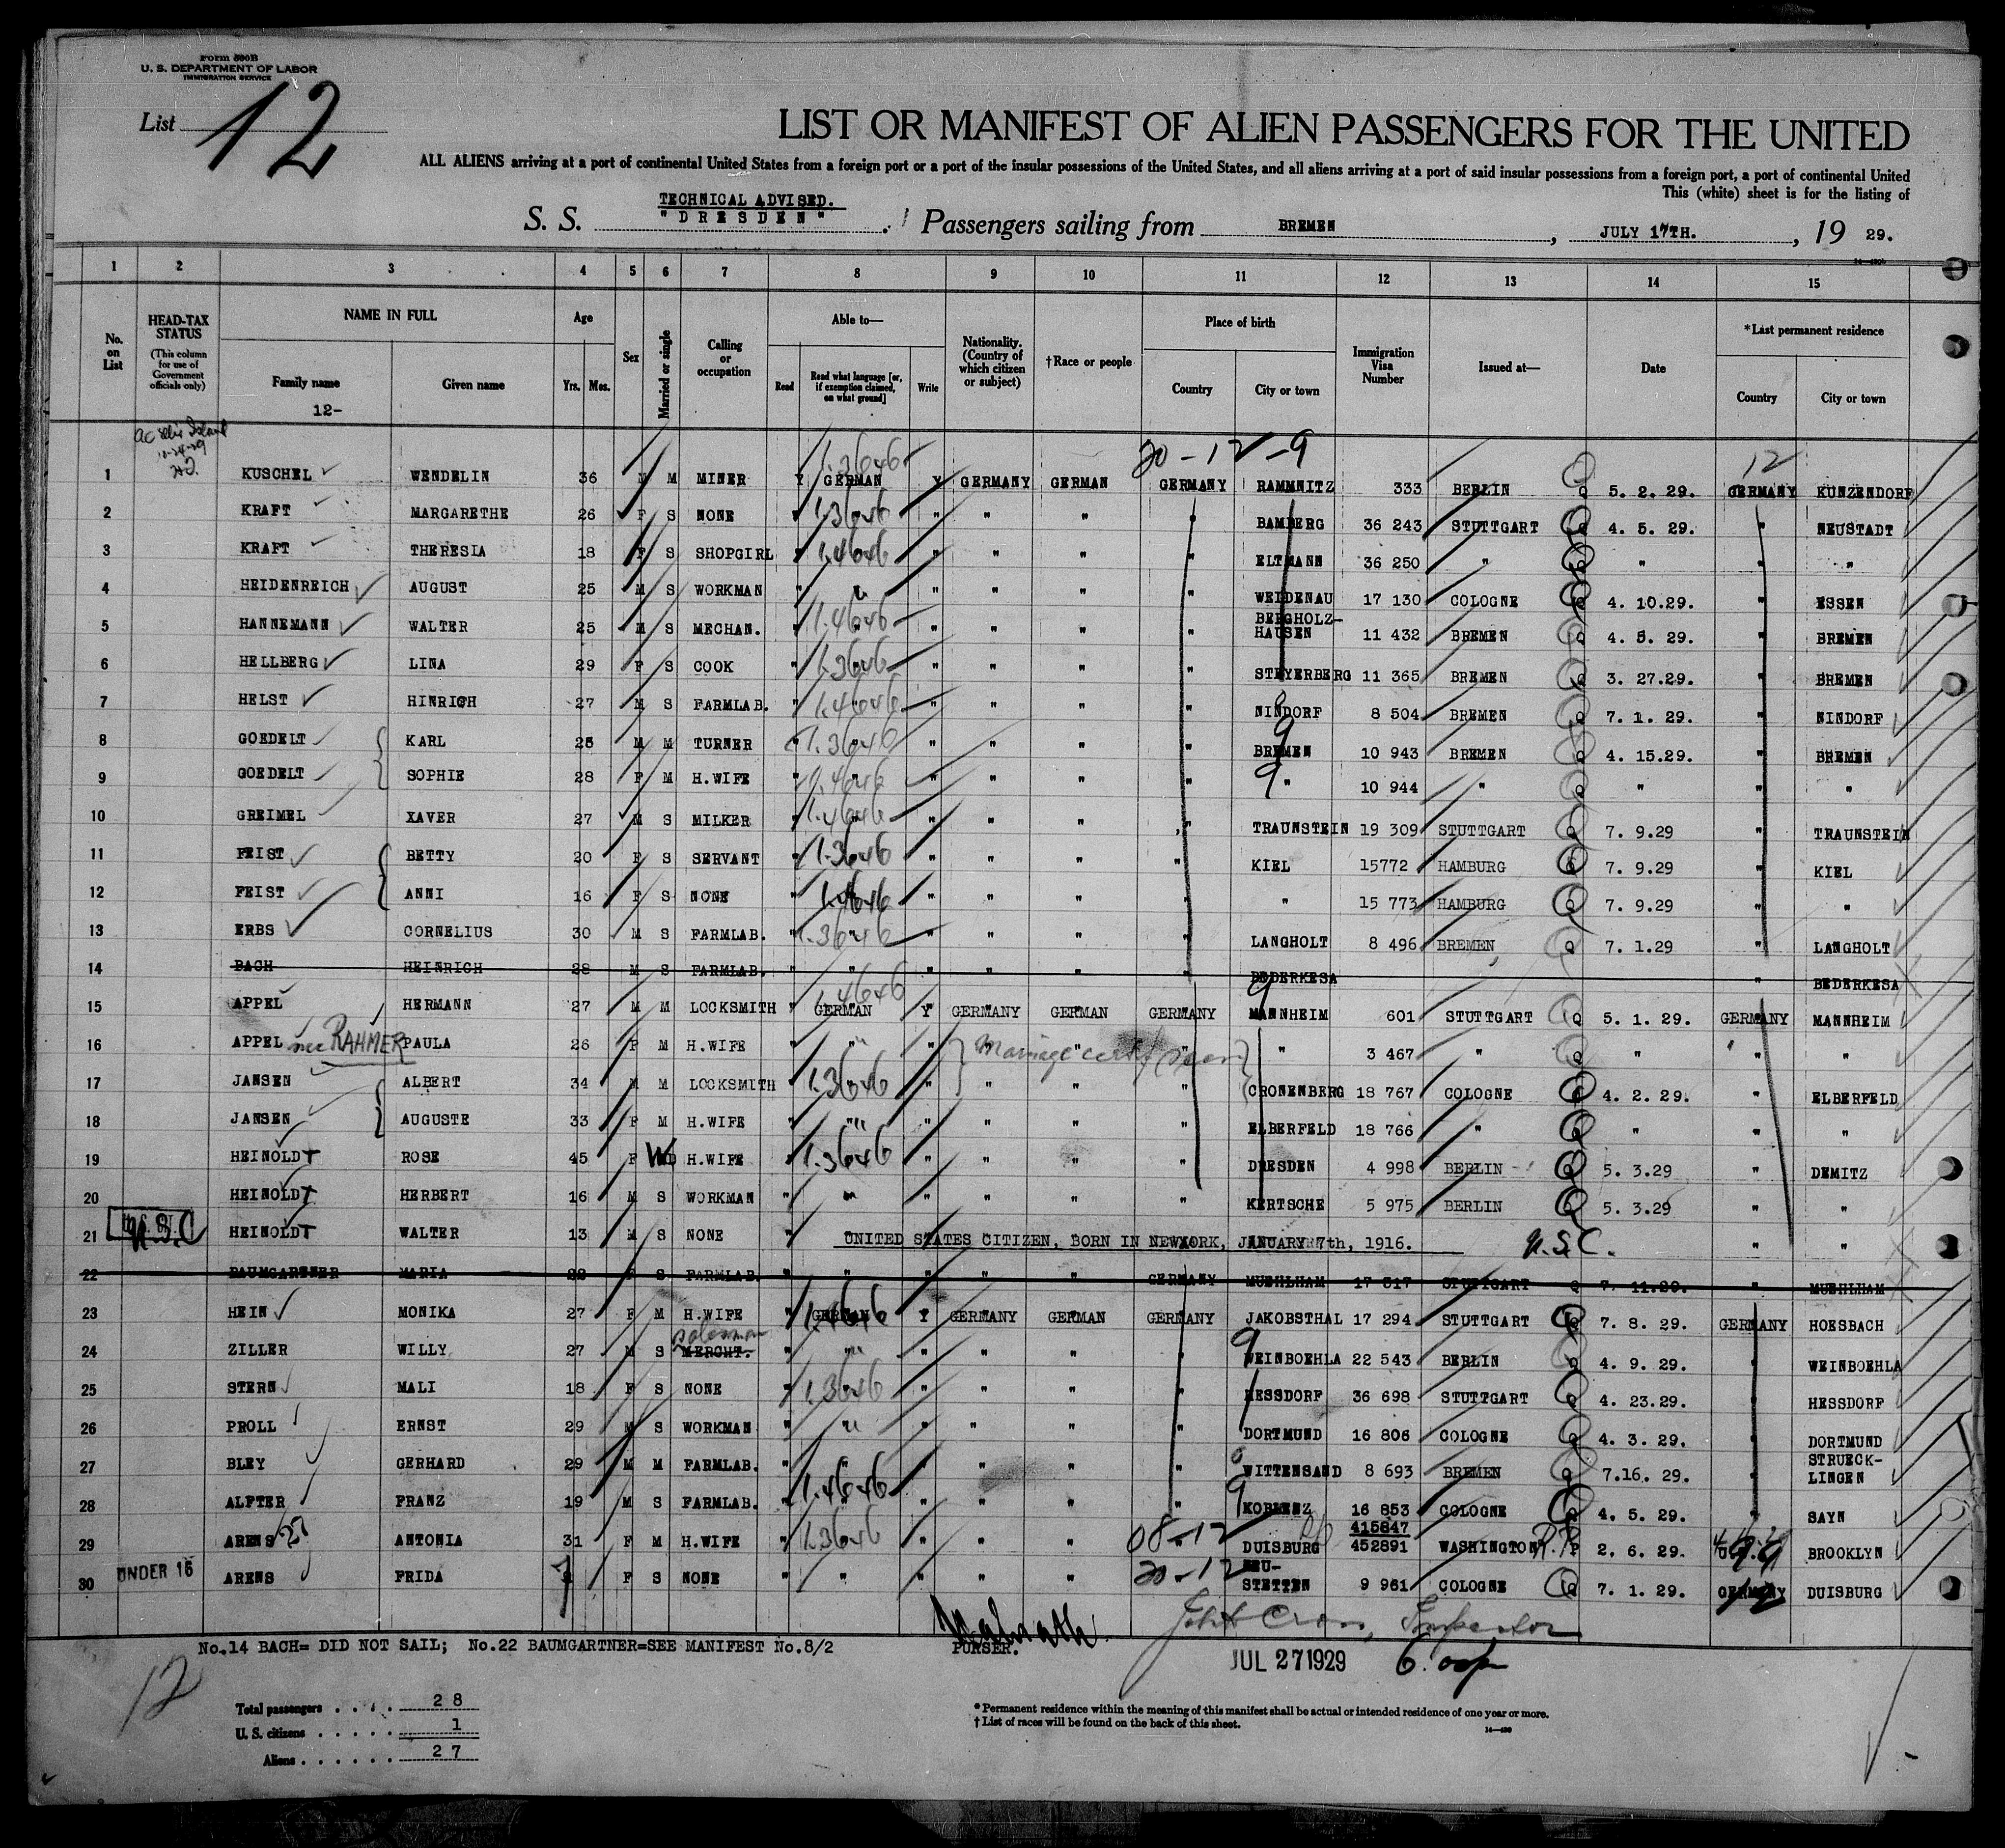 Form 500B
U. S. DEPARTMENT OF LABOR
IMMIGRATION SERVICE
List 12
LIST OR MANIFEST OF ALIEN PASSENGERS FOR THE UNITED
ALL ALIENS arriving at a port of continental United States from a foreign port or a port of the insular possessions of the United States, and all aliens arriving at a port of said insular possessions from a foreign port, a port of continental United
This (white) sheet is for the listing of
TECHNICAL ADVISED.
S. S. "DRESDEN" . Passengers sailing from BREMEN , JULY 17TH. , 19 29.
1 2 3 4 5 6 7 8 9 10 11 12 13 14 15
No. on List HEAD-TAX STATUS (This column for use of Government officials only) NAME IN FULL Family name Given name Age Yrs. Mos. Sex Married or single Calling or occupation Able to— Read Read what language [or, if exemption claimed, on what ground] Write Nationality. (Country of which citizen or subject) †Race or people Place of birth Country City or town Immigration Visa Number Issued at— Date *Last permanent residence Country City or town
12-
20-12-9 12
1 KUSCHEL WENDELIN 36 M M MINER Y GERMAN Y GERMANY GERMAN GERMANY RAMMNITZ 333 BERLIN Q 5. 2. 29. GERMANY KUNZENDORF
2 KRAFT MARGARETHE 26 F S NONE " " " " " " BAMBERG 36 243 STUTTGART Q 4. 5. 29. " NEUSTADT
3 KRAFT THERESIA 18 F S SHOPGIRL " " " " " " ELTMANN 36 250 " Q " " "
4 HEIDENREICH AUGUST 25 M S WORKMAN " " " " " " WEIDENAU 17 130 COLOGNE Q 4. 10.29. " ESSEN
5 HANNEMANN WALTER 25 M S MECHAN. " " " " " " BERGHOLZ-HAUSEN 11 432 BREMEN Q 4. 5. 29. " BREMEN
6 HELLBERG LINA 29 F S COOK " " " " " " STEYERBERG 11 365 BREMEN Q 3. 27.29. " BREMEN
7 HELST HINRICH 27 M S FARMLAB. " " " " " " NINDORF 8 504 BREMEN Q 7. 1. 29. " NINDORF
8 GOEDELT KARL 25 M M TURNER " " " " " " BREMEN 10 943 BREMEN Q 4. 15.29. " BREMEN
9 GOEDELT SOPHIE 28 F M H.WIFE " " " " " " " 10 944 " Q " " "
10 GREIMEL XAVER 27 M S MILKER " " " " " " TRAUNSTEIN 19 309 STUTTGART Q 7. 9.29 " TRAUNSTEIN
11 FEIST BETTY 20 F S SERVANT " " " " " " KIEL 15772 HAMBURG Q 7. 9.29 " KIEL
12 FEIST ANNI 16 F S NONE " " " " " " " 15 773 HAMBURG Q 7. 9.29 " "
13 ERBS CORNELIUS 30 M S FARMLAB. " " " " " " LANGHOLT 8 496 BREMEN Q 7. 1.29 " LANGHOLT
14 BACH HEINRICH 28 M S FARMLAB. " " " " " " BEDERKESA " BEDERKESA
15 APPEL HERMANN 27 M M LOCKSMITH " GERMAN Y GERMANY GERMAN GERMANY MANNHEIM 601 STUTTGART Q 5. 1. 29. GERMANY MANNHEIM
16 APPEL nee RAHMER PAULA 26 F M H.WIFE " " " Marriage cert. seen " 3 467 " Q " " "
17 JANSEN ALBERT 34 M M LOCKSMITH " " " " " " CRONENBERG 18 767 COLOGNE Q 4. 2. 29. " ELBERFELD
18 JANSEN AUGUSTE 33 F M H.WIFE " " " " " " ELBERFELD 18 766 " Q " " "
19 HEINOLDT ROSE 45 F WD H.WIFE " " " " " " DRESDEN 4 998 BERLIN Q 5. 3.29 " DEMITZ
20 HEINOLDT HERBERT 16 M S WORKMAN " " " " " " KERTSCHE 5 975 BERLIN Q 5. 3.29 " "
21 U.S.C HEINOLDT WALTER 13 M S NONE " UNITED STATES CITIZEN, BORN IN NEWYORK, JANUARY 7th, 1916. U.S.C. " "
22 BAUMGARTNER MARIA 22 F S FARMLAB. " " " " " GERMANY MUEHLHAM 17 317 STUTTGART Q 7. 11.29. " MUEHLHAM
23 HEIN MONIKA 27 F M H.WIFE " GERMAN Y GERMANY GERMAN GERMANY JAKOBSTHAL 17 294 STUTTGART Q 7. 8. 29. GERMANY HOESBACH
24 ZILLER WILLY 27 M S MERCHT. salesman " " " " " " WEINBOEHLA 22 543 BERLIN Q 4. 9. 29. " WEINBOEHLA
25 STERN MALI 18 F S NONE " " " " " " HESSDORF 36 698 STUTTGART Q 4. 23.29. " HESSDORF
26 PROLL ERNST 29 M S WORKMAN " " " " " " DORTMUND 16 806 COLOGNE Q 4. 3. 29. " DORTMUND
27 BLEY GERHARD 29 M M FARMLAB. " " " " " " WITTENSAND 8 693 BREMEN Q 7.16. 29. " STRUECK-LINGEN
28 ALFTER FRANZ 19 M S FARMLAB. " " " " " " KOBLENZ 16 853 COLOGNE Q 4. 5. 29. " SAYN
29 ARENS ANTONIA 31 F M H.WIFE " " " " " 08-12 DUISBURG R/P 415847 452891 WASHINGTON R.P 2. 6. 29. BROOKLYN
30 UNDER 16 ARENS FRIDA 7 F S NONE " " " " " 20-12 NEU-STETTEN 9 961 COLOGNE Q 7. 1. 29. GERMANY 12 DUISBURG
No.14 BACH= DID NOT SAIL; No.22 BAUMGARTNER=SEE MANIFEST No.8/2 PURSER.
Inspector
JUL 27 1929 6.00 pm
12
Total passengers . . . . 28
U. S. citizens . . . . . 1
Aliens . . . . . . 27
* Permanent residence within the meaning of this manifest shall be actual or intended residence of one year or more.
† List of races will be found on the back of this sheet.